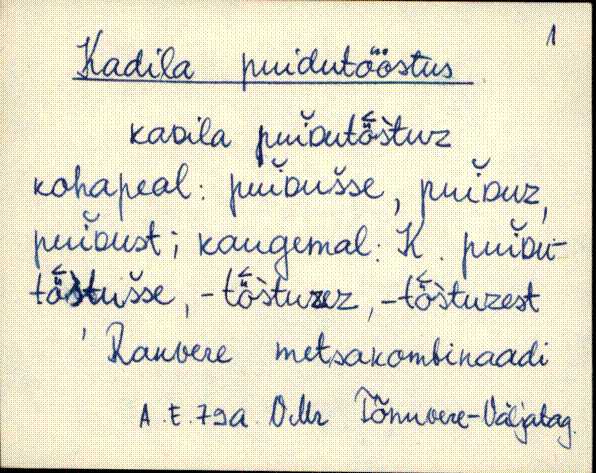 1
Kadila puidutööstus
kaDila puĭDutö̀štuz
kohapeal: puĭDušse, puĭDuz,
puĭDust; kaugemal: K. puĭDu-
tö̀štušse, -tö̀štuzez, -tö̀štuzest
Rakvere metsakombinaadi
A.E.79a VMr Tõnuvere-Väljatag.